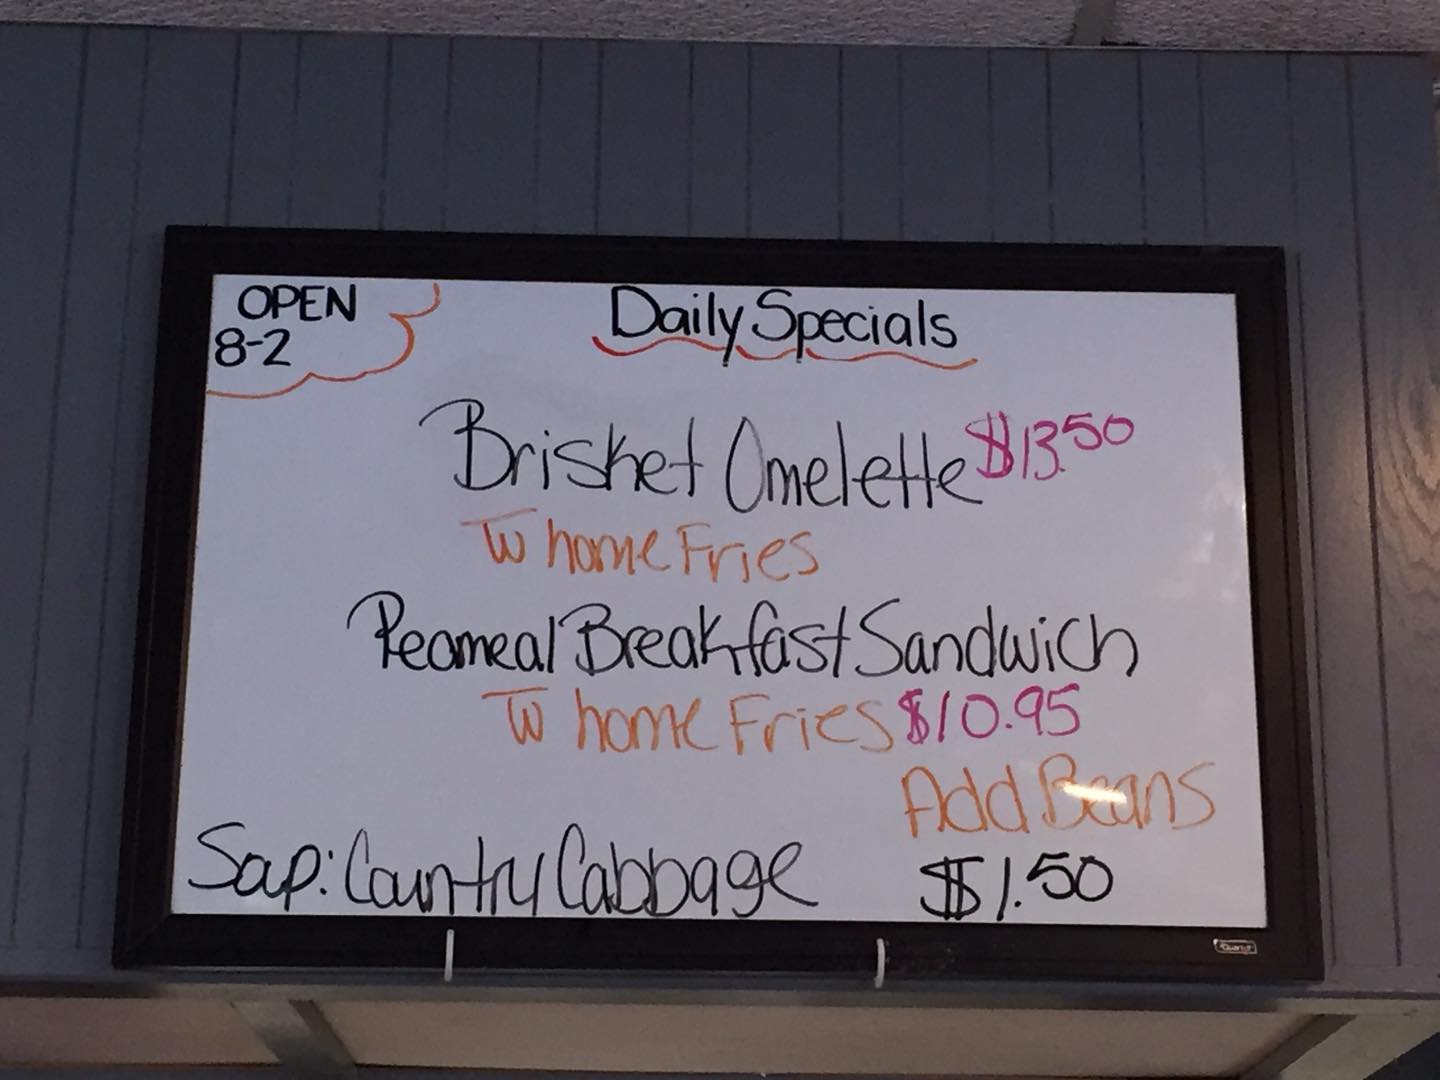 OPEN
8-2
Daily Specials
Brisket Omelette $13.50
w home Fries
Peameal Breakfast Sandwich
w home Fries $10.95
Add Beans
$1.50
Soup: Country Cabbage
Quartet